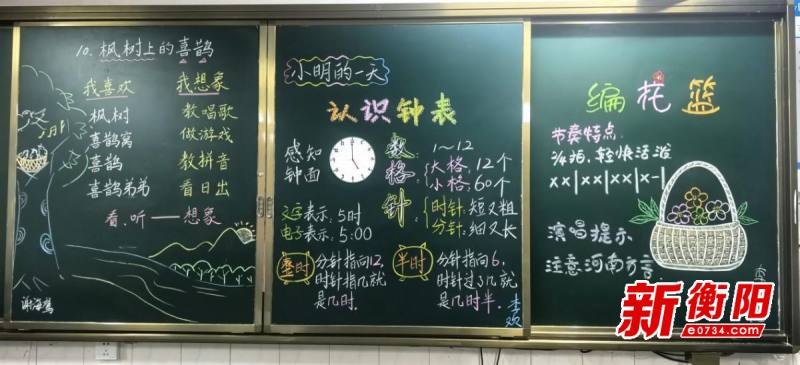 10.枫树上的喜鹊
我喜欢 我想象
枫树 教唱歌
喜鹊窝 做游戏
喜鹊 教拼音
喜鹊弟弟 看日出
看.听——想象
谢海鹰
小明的一天
认识钟表
感知
钟面
数 1~12
格 大格:12个
小格:60个
针 时针:短又粗
分针:细又长
文字表示:5时
电子表示:5:00
整时 分针指向12,
时针指几就
是几时.
半时 分针指向6,
时针过了几就
是几时半.
李欢
编花篮
节奏特点
xx|xx|xx|x-|
演唱提示
注意河南方言.
新衡阳
e0734.com